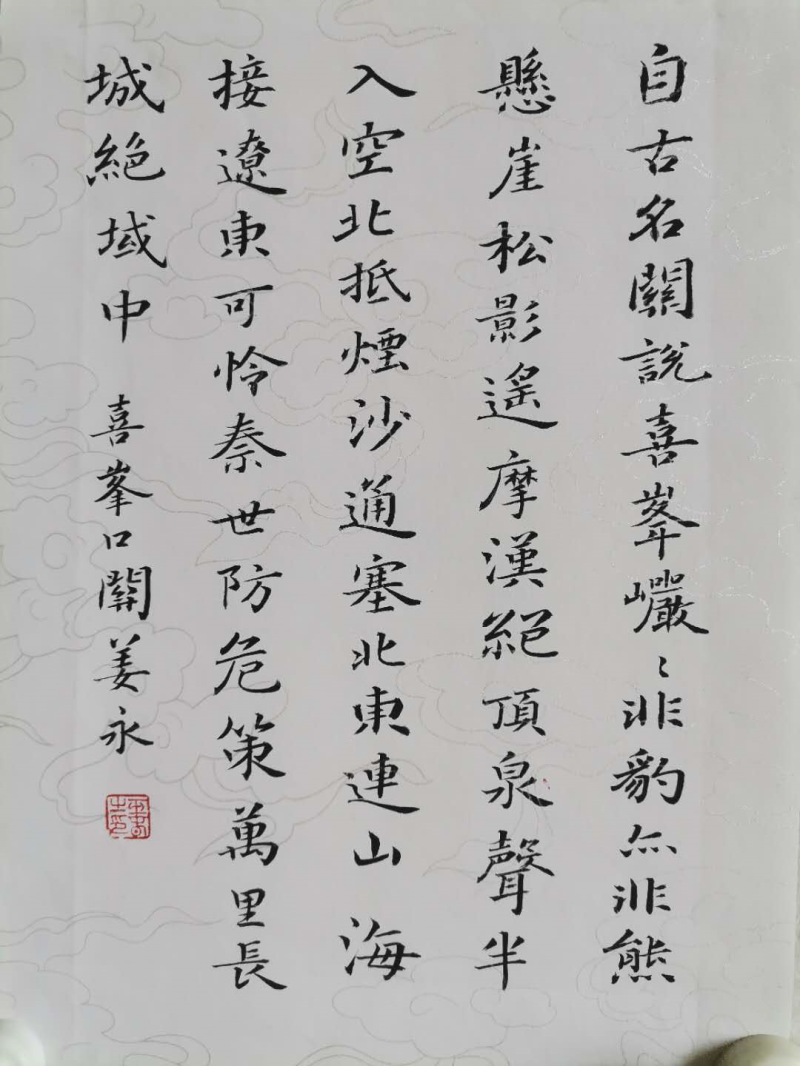 自古名關說喜峯巖〻非豹亦非熊
懸崖松影遥摩漢絕頂泉聲半
入空北抵煙沙通塞北東連山海
接遼東可怜秦世防危策萬里長
城絕域中 喜峯口關姜永